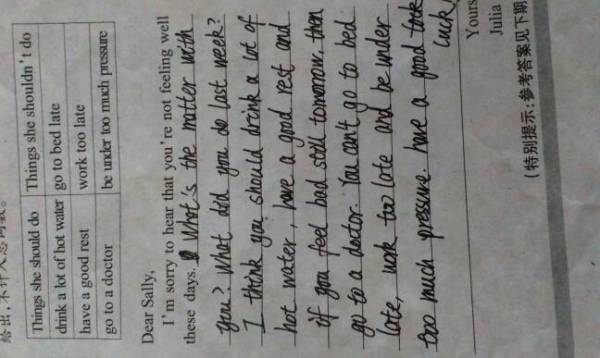 给出，不计入总词数。
Things she should do Things she shouldn't do
drink a lot of hot water go to bed late
have a good rest work too late
go to a doctor be under too much pressure
Dear Sally,
I'm sorry to hear that you're not feeling well
these days. What's the matter with
you? What did you do last week?
I think you should drink a lot of
hot water, have a good rest and
if you feel bad still tomorrow, then
go to a doctor. You can't go to bed
late, work too late and be under
too much pressure. have a good
luck
Yours
Julia
(特别提示:参考答案见下期